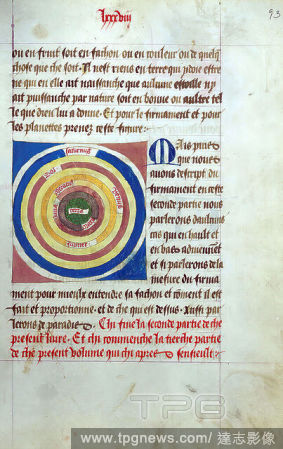 lxxxviij
93
ou en fruit soit en fachon ou en couleur ou de quelq̃
chose que che soit. Il nest riens en terre qui puist estre
ne qui en elle ait naissanche que aulcune estoille np
ait puissanche par nature soit en bonne ou aultre tel
le que dieu lui a donne. Et pour le firmament et pour
les planettes prenez ceste figure:
Mais puis
que nous
auons descript du
firmament en ceste
seconde partie nous
parlerons daulcuns
cas qui en hault et
en bas aduiennẽt
et si parlerons de la
mesure du firma
ment pour mieulx entendre sa fachon et cõment il est
fait et proportionne. et de che qui est dessus. Aussi par
lerons de paradis. Chi fine la seconde partie de che
present liure. Et chi commenche la tierche partie
de che present volume qui chi apres sensieult:
saturnus
iupiter
terre
TPG
www.tpgnews.com/達志影像